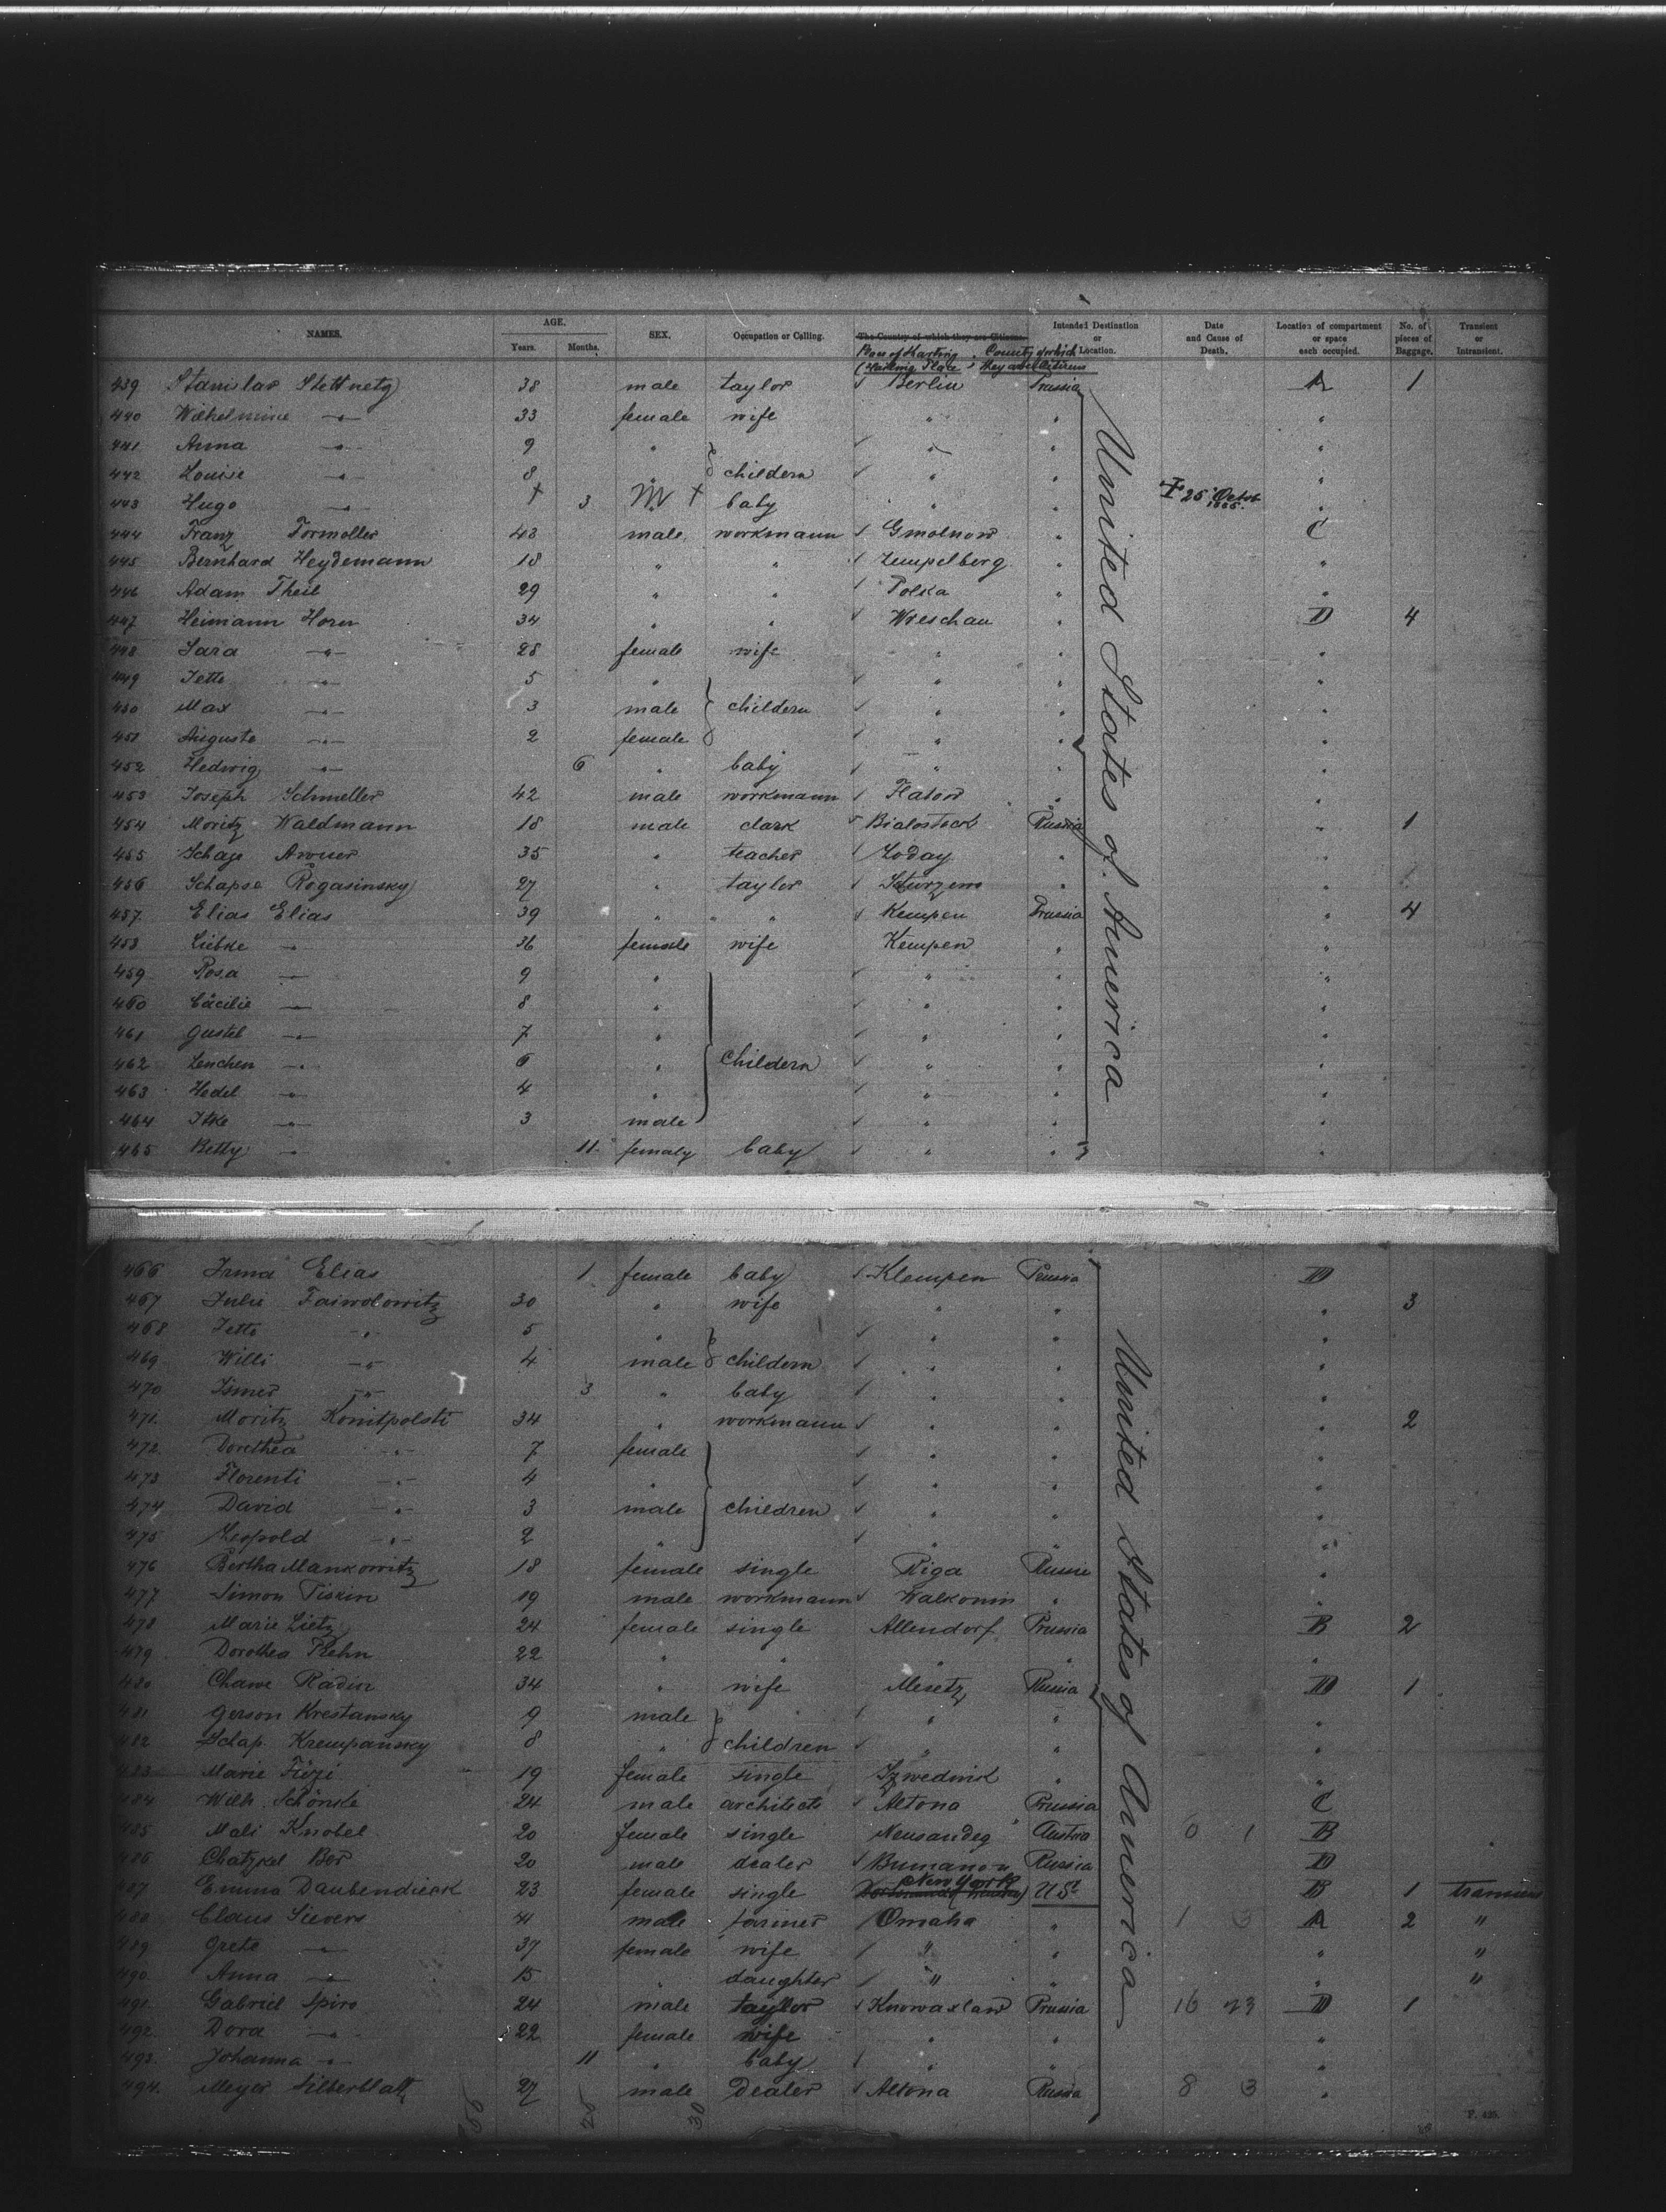 NAMES. AGE. Years. Months. SEX. Occupation or Calling. The Country of which they are Citizens. Intended Destination or Location. Date and Cause of Death. Location of compartment or space each occupied. No. of pieces of Baggage. Transient or Intransient.
Place of Starting Country of which
(Starting Place) they are Citizens
439 Stanislar Stettnetz 38 male taylor Berlin Prussia A 1
440 Wilhelmine " 33 female wife " " "
441 Anna " 9 " " " "
442 Louise " 8 " childern " " "
443 Hugo " 3 M baby " " † 25 Octob. "
444 Franz Formoller 43 male workmann Gmolnow " C
445 Bernhard Heydemann 18 " " Zempelberg " "
446 Adam Theil 29 " " Polka " "
447 Heimann Horn 34 " " Wreschau " D 4
448 Sara " 28 female wife " " "
449 Jette " 5 " " " "
450 Max " 3 male childern " " "
451 Auguste " 2 female " " "
452 Hedwig " 6 " baby " " "
453 Joseph Schmeller 42 male workmann Flatow " "
454 Moritz Waldmann 18 male clark Bialostock Russia " 1
455 Schaje 35 " teacher Loday " "
456 Schapse Rogasinsky 27 " taylor " "
457 Elias Elias 39 " " Kempen Prussia " 4
458 Liebke " 36 female wife Kempen " "
459 Rosa " 9 " " " "
460 Cäcilie " 8 " " " "
461 Gustel " 7 " " " "
462 Lenchen " 6 " childern " " "
463 Hedel " 4 " " " "
464 Itke " 3 male " " "
465 Betty " 11 femaly baby " " "
United States of America
466 Irma Elias 1 female baby Klempen Prussia D
467 Julie Faiwolowitz 30 " wife " " " 3
468 Jette " 5 " " " "
469 Willi " 4 male childern " " "
470 Ismer " 3 " baby " " "
471 Moritz Konitpolsti 34 " workmann " " " 2
472 Dorethea " 7 female " " "
473 Florenti " 4 " " " "
474 David " 3 male children " " "
475 Leopold " 2 " " " "
476 Bertha Mankowitz 18 female single Riga Russia "
477 Simon Piskin 19 male workmann Walkonin " "
478 Marie Lietz 24 female single Allendorf Prussia B 2
479 Dorothea Rehn 22 " " " " "
480 Chawe Radin 34 " wife Meretz Russia D 1
481 Gerson Krestansky 9 male " " "
482 Krempansky 8 " children " " "
483 Marie 19 female single " "
484 Wilh. Schönste 24 male architects Altona Prussia C
485 Mali Knobel 20 female single Neusandeg Austria 0 1 B
486 Chatzkel Bor 20 male dealer Russia D
487 Emma Daubendieck 23 female single New York U St B 1
488 Claus Sievers 41 male farmer Omaha " 1 3 A 2 "
489 Grete " 37 female wife " " " "
490 Anna " 15 " daughter " " " "
491 Gabriel Spiro 24 male taylor Knowaslaw Prussia 16 23 D 1
492 Dora " 22 female wife " " "
493 Johanna " 11 " baby " " "
494. Meyer Silberblatt 27 male Dealer Altona Russia 8 3 "
United States of America